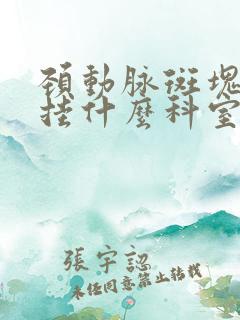 頚動脉斑塊
挂什麽科室
張宇認
未任同意禁止转载